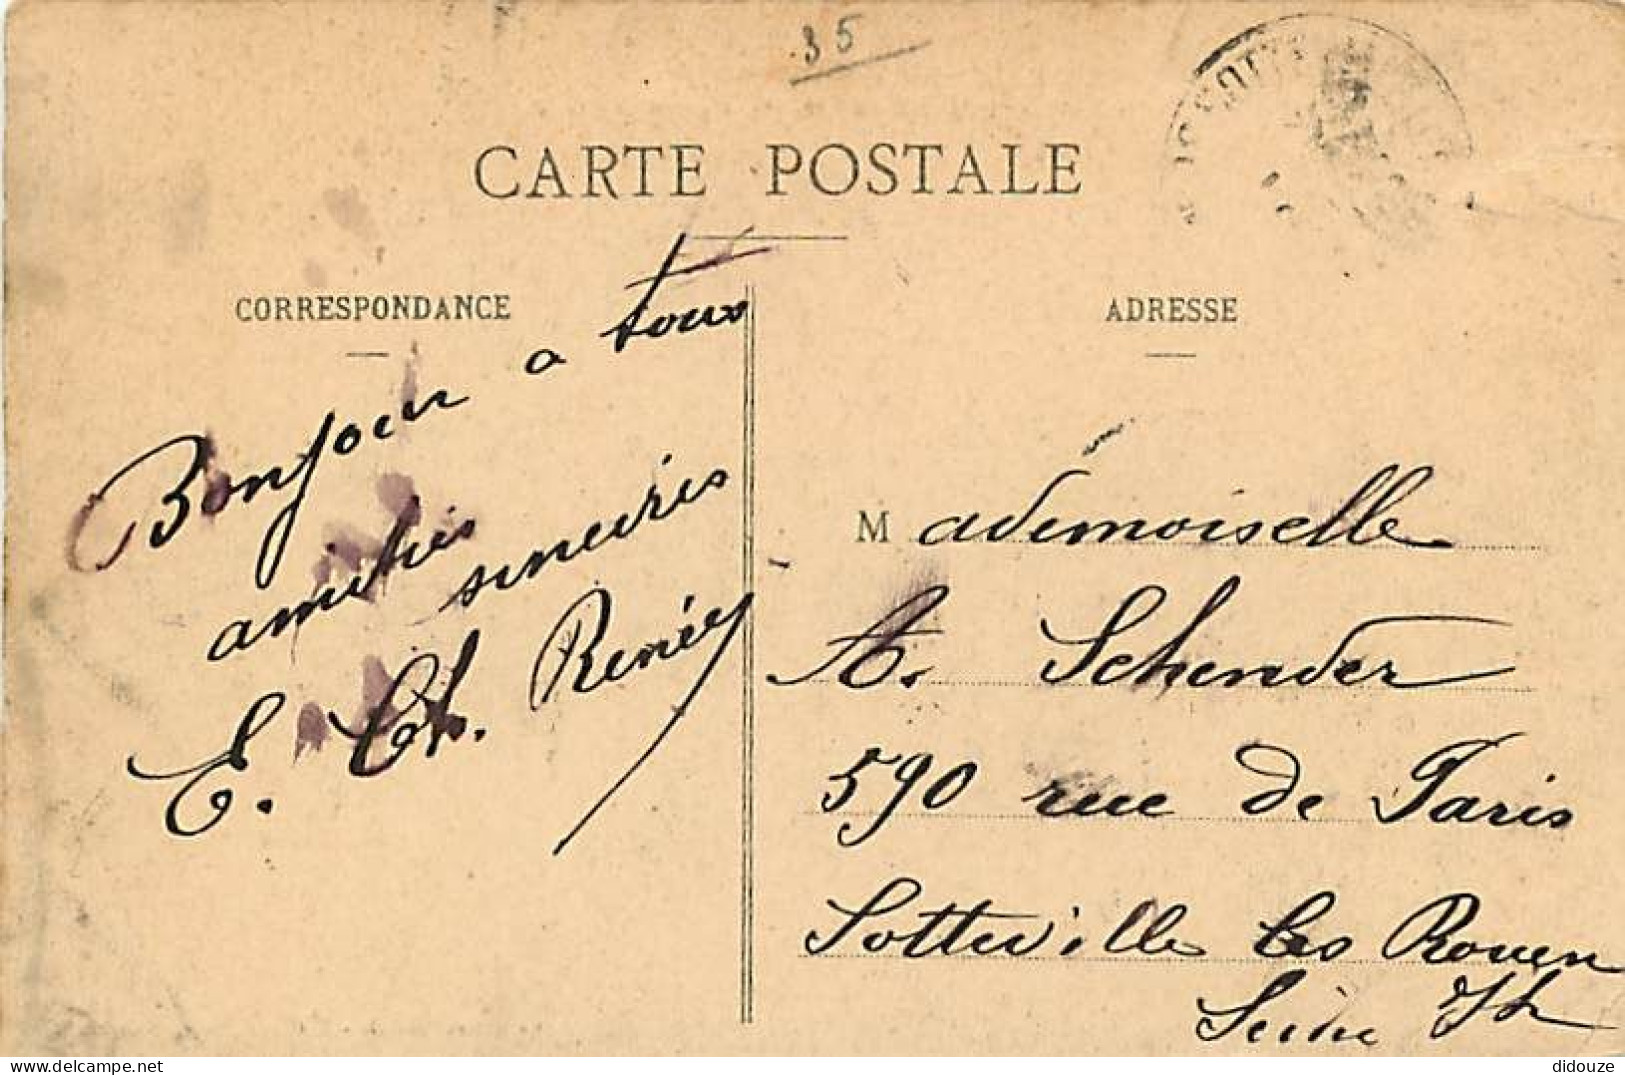 35
CARTE POSTALE
CORRESPONDANCE
ADRESSE
Bonjour a tous
amitiés sincères
E. Ch. Renée
Mademoiselle
A. Schender
590 rue de Paris
Sotteville les Rouen
Seine Ih
didouze